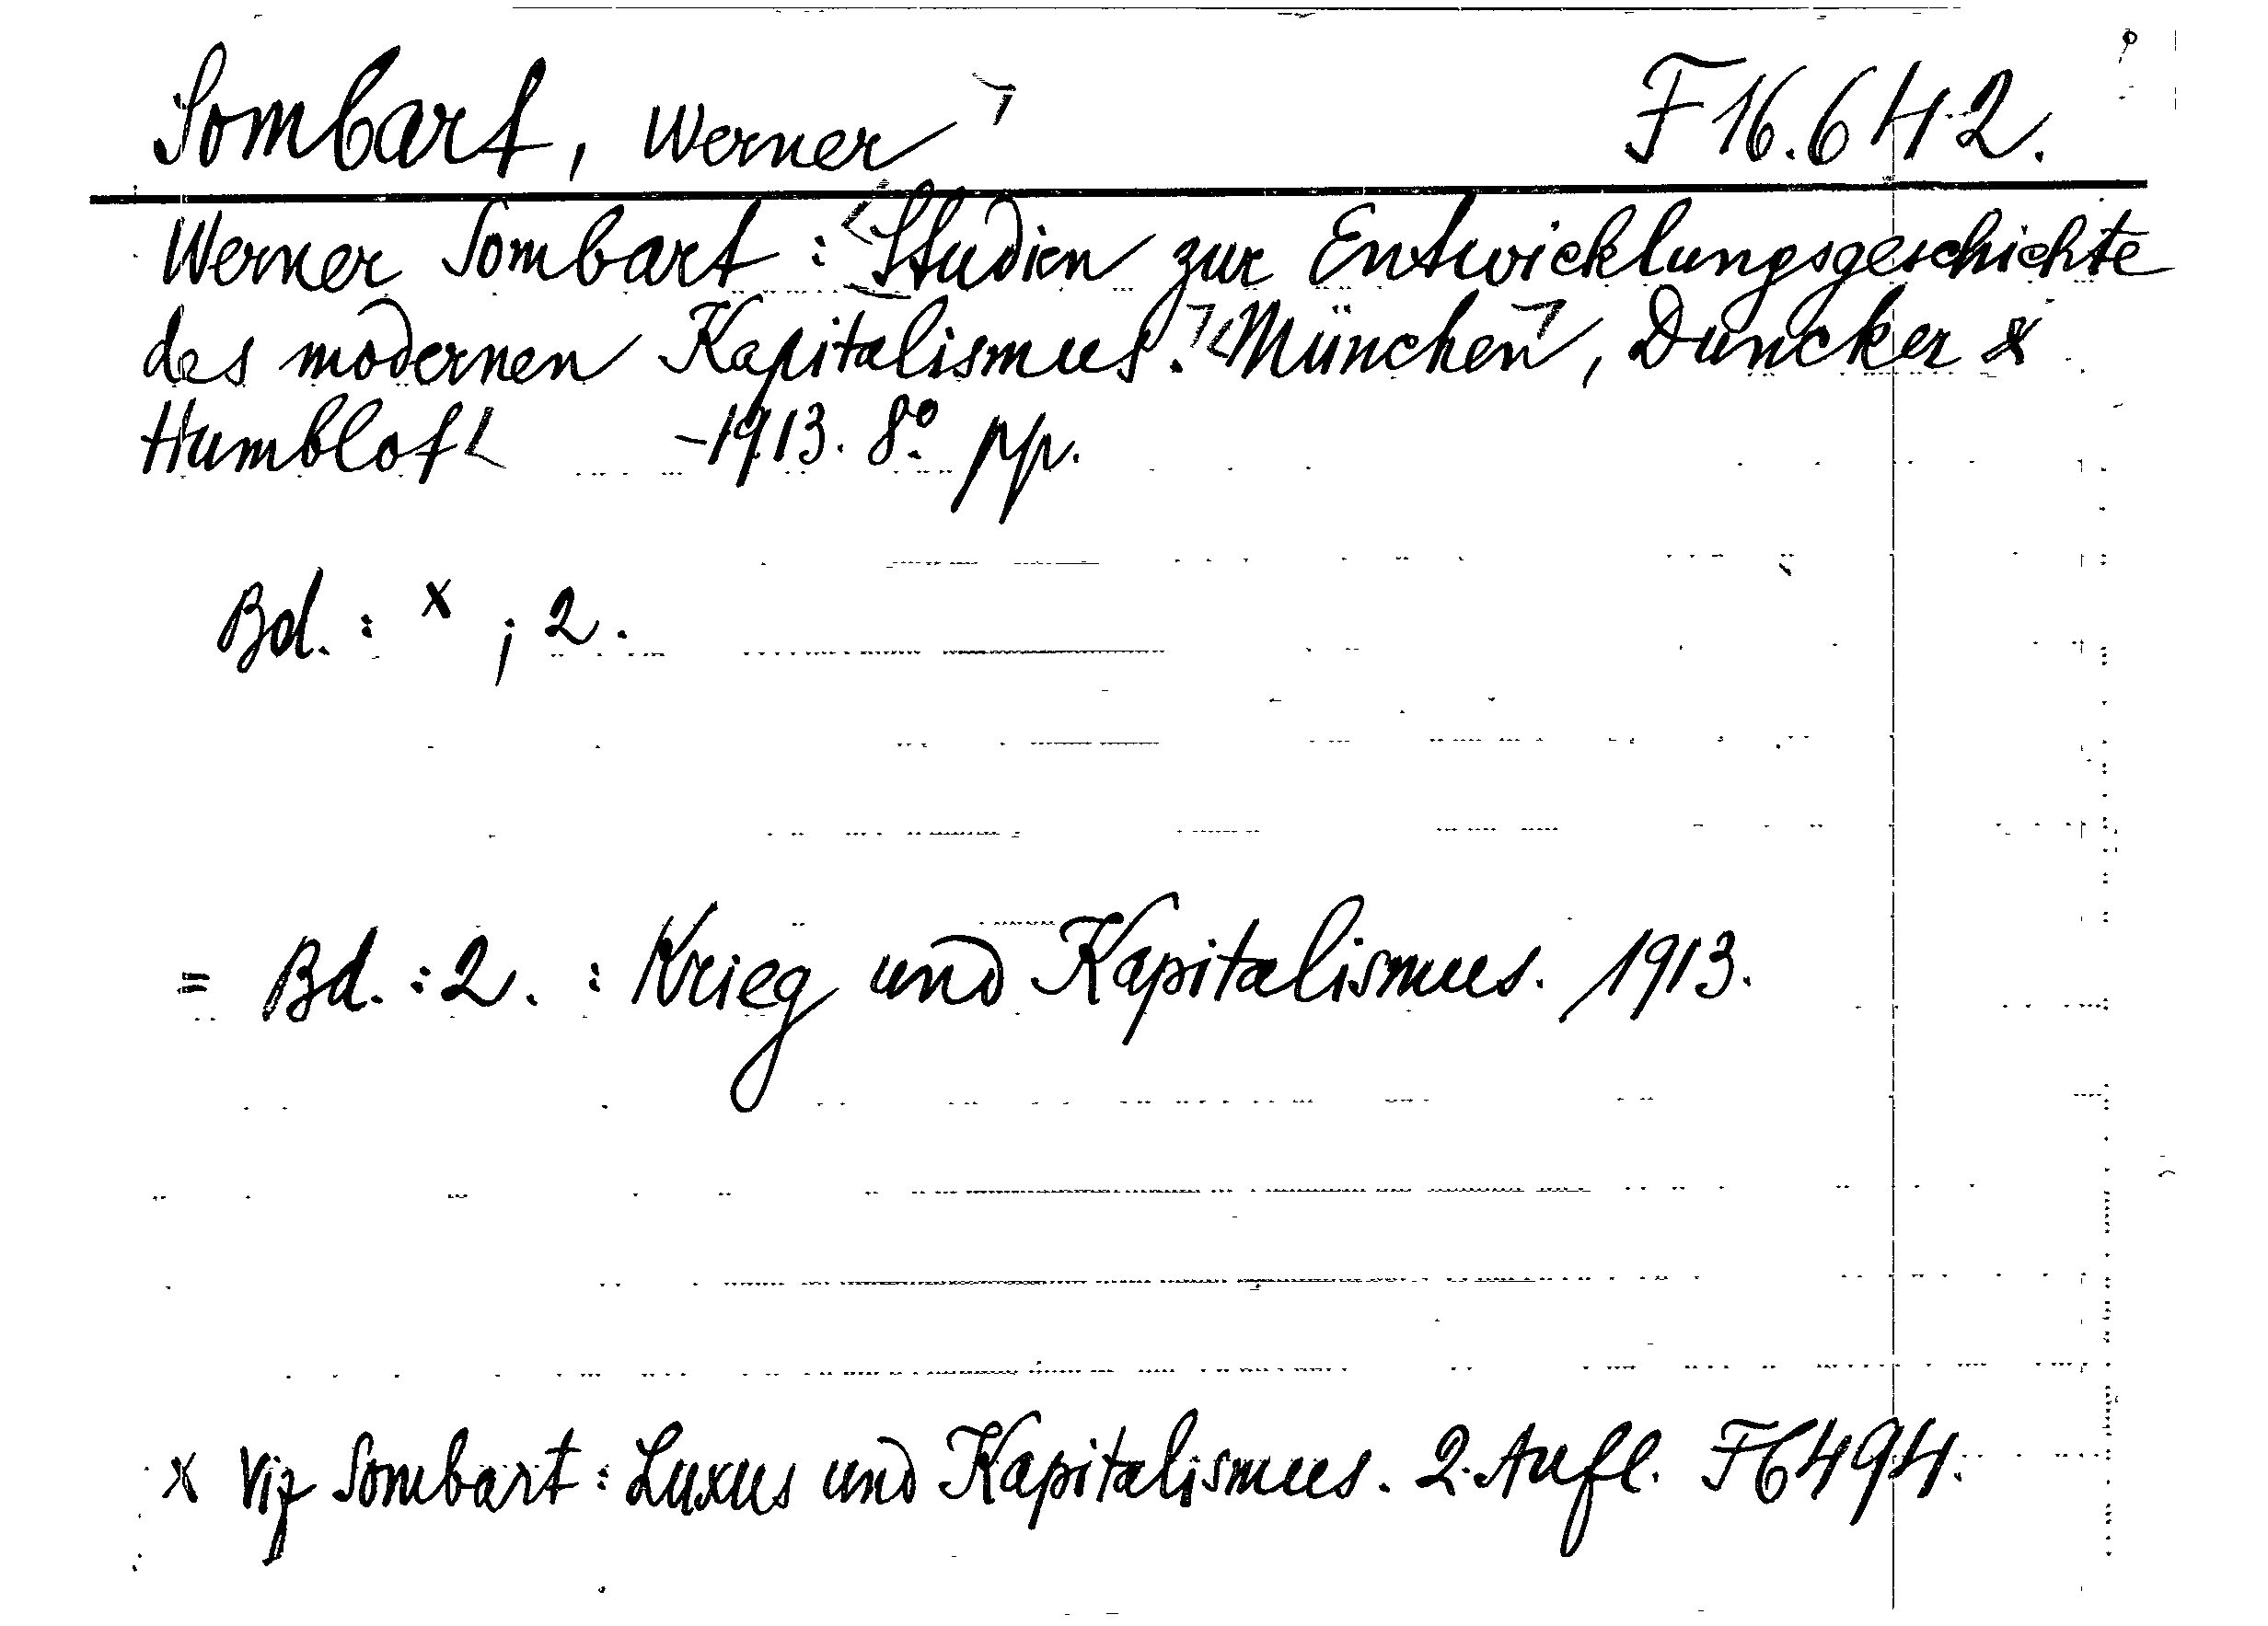 Sombart, Werner F 16.642.
Werner Sombart: Studien zur Entwicklungsgeschichte
des modernen Kapitalismus. München, Duncker &
Humblot -1913. 8° pp.
Bd.: x ; 2.
= Bd.: 2. : Krieg und Kapitalismus. 1913.
x Viz Sombart: Luxus und Kapitalismus. 2. Aufl. F 6494.